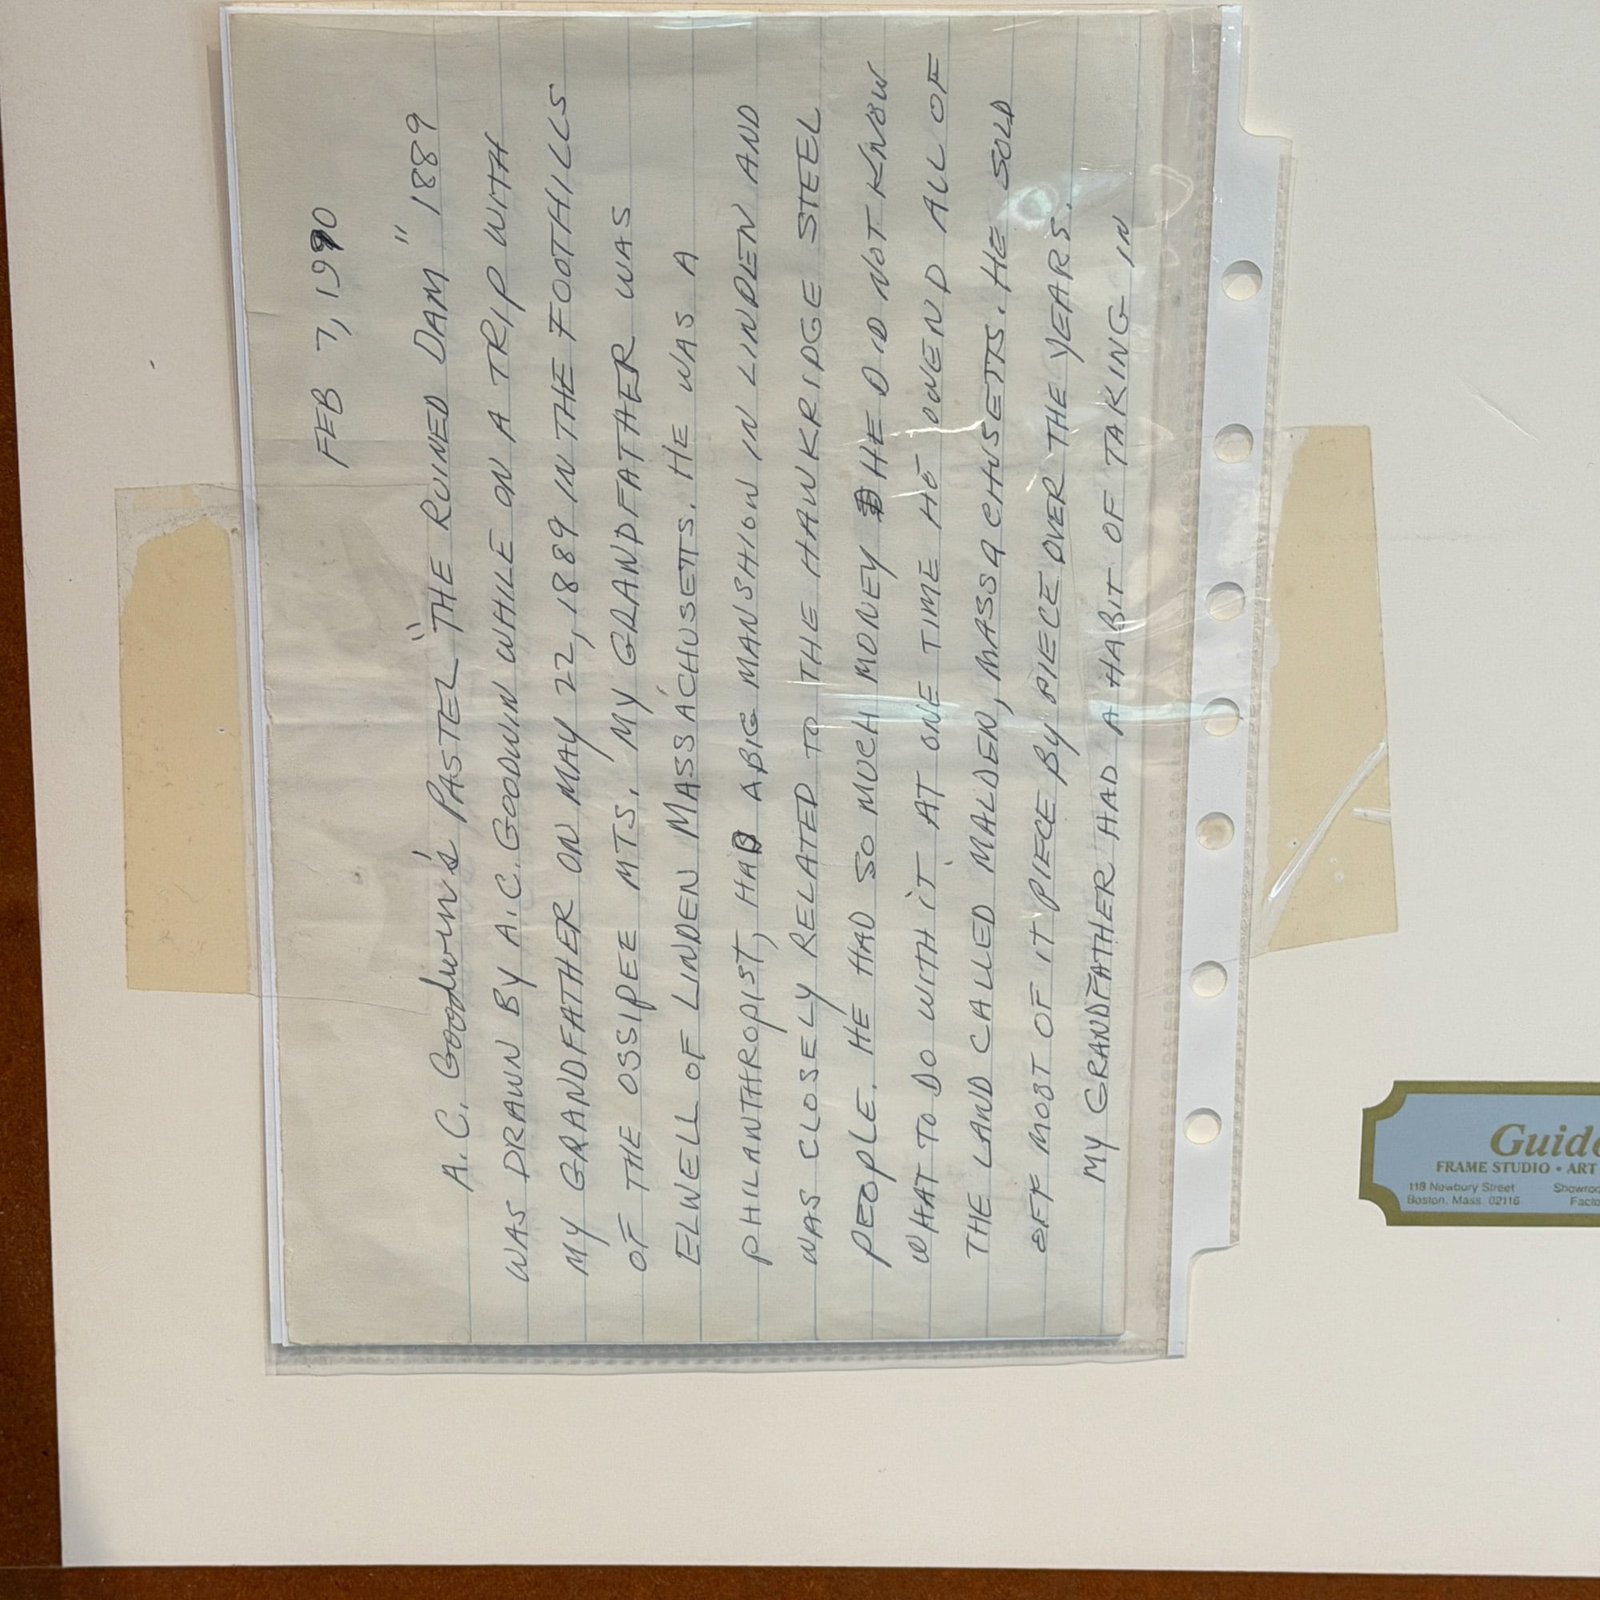 FEB 7, 1990
A. C. Goodwin's PASTEL "THE RUINED DAM" 1889
WAS DRAWN BY A.C. GOODWIN WHILE ON A TRIP WITH
MY GRANDFATHER ON MAY 22, 1889 IN THE FOOTHILLS
OF THE OSSIPEE MTS. MY GRANDFATHER WAS
ELWELL OF LINDEN MASSACHUSETTS. HE WAS A
PHILANTHROPIST, HAD A BIG MANSHION IN LINDEN AND
WAS CLOSELY RELATED TO THE HAWKRIDGE STEEL
PEOPLE. HE HAD SO MUCH MONEY HE DID NOT KNOW
WHAT TO DO WITH IT. AT ONE TIME HE OWEND ALL OF
THE LAND CALLED MALDEN, MASSACHUSETTS. HE SOLD
OFF MOST OF IT PIECE BY PIECE OVER THE YEARS.
MY GRANDFATHER HAD A HABIT OF TAKING IN
Guido
FRAME STUDIO • ART
119 Newbury Street
Boston, Mass. 02116
Showroo
Facto